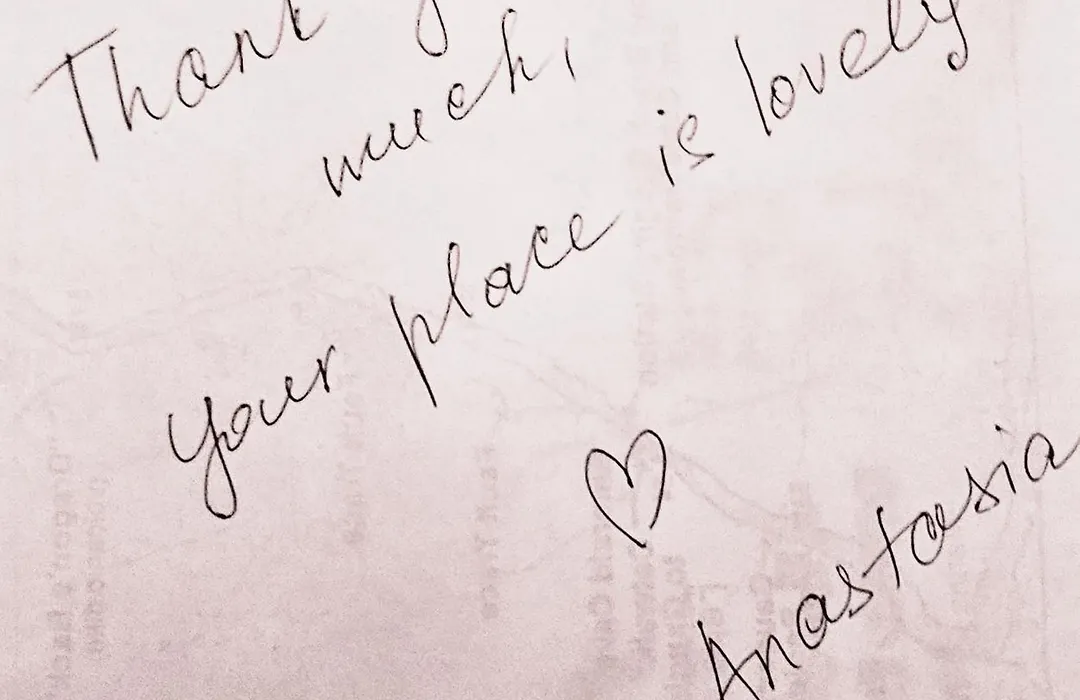 Thank
much,
Your place is lovely
♡
Anastasia